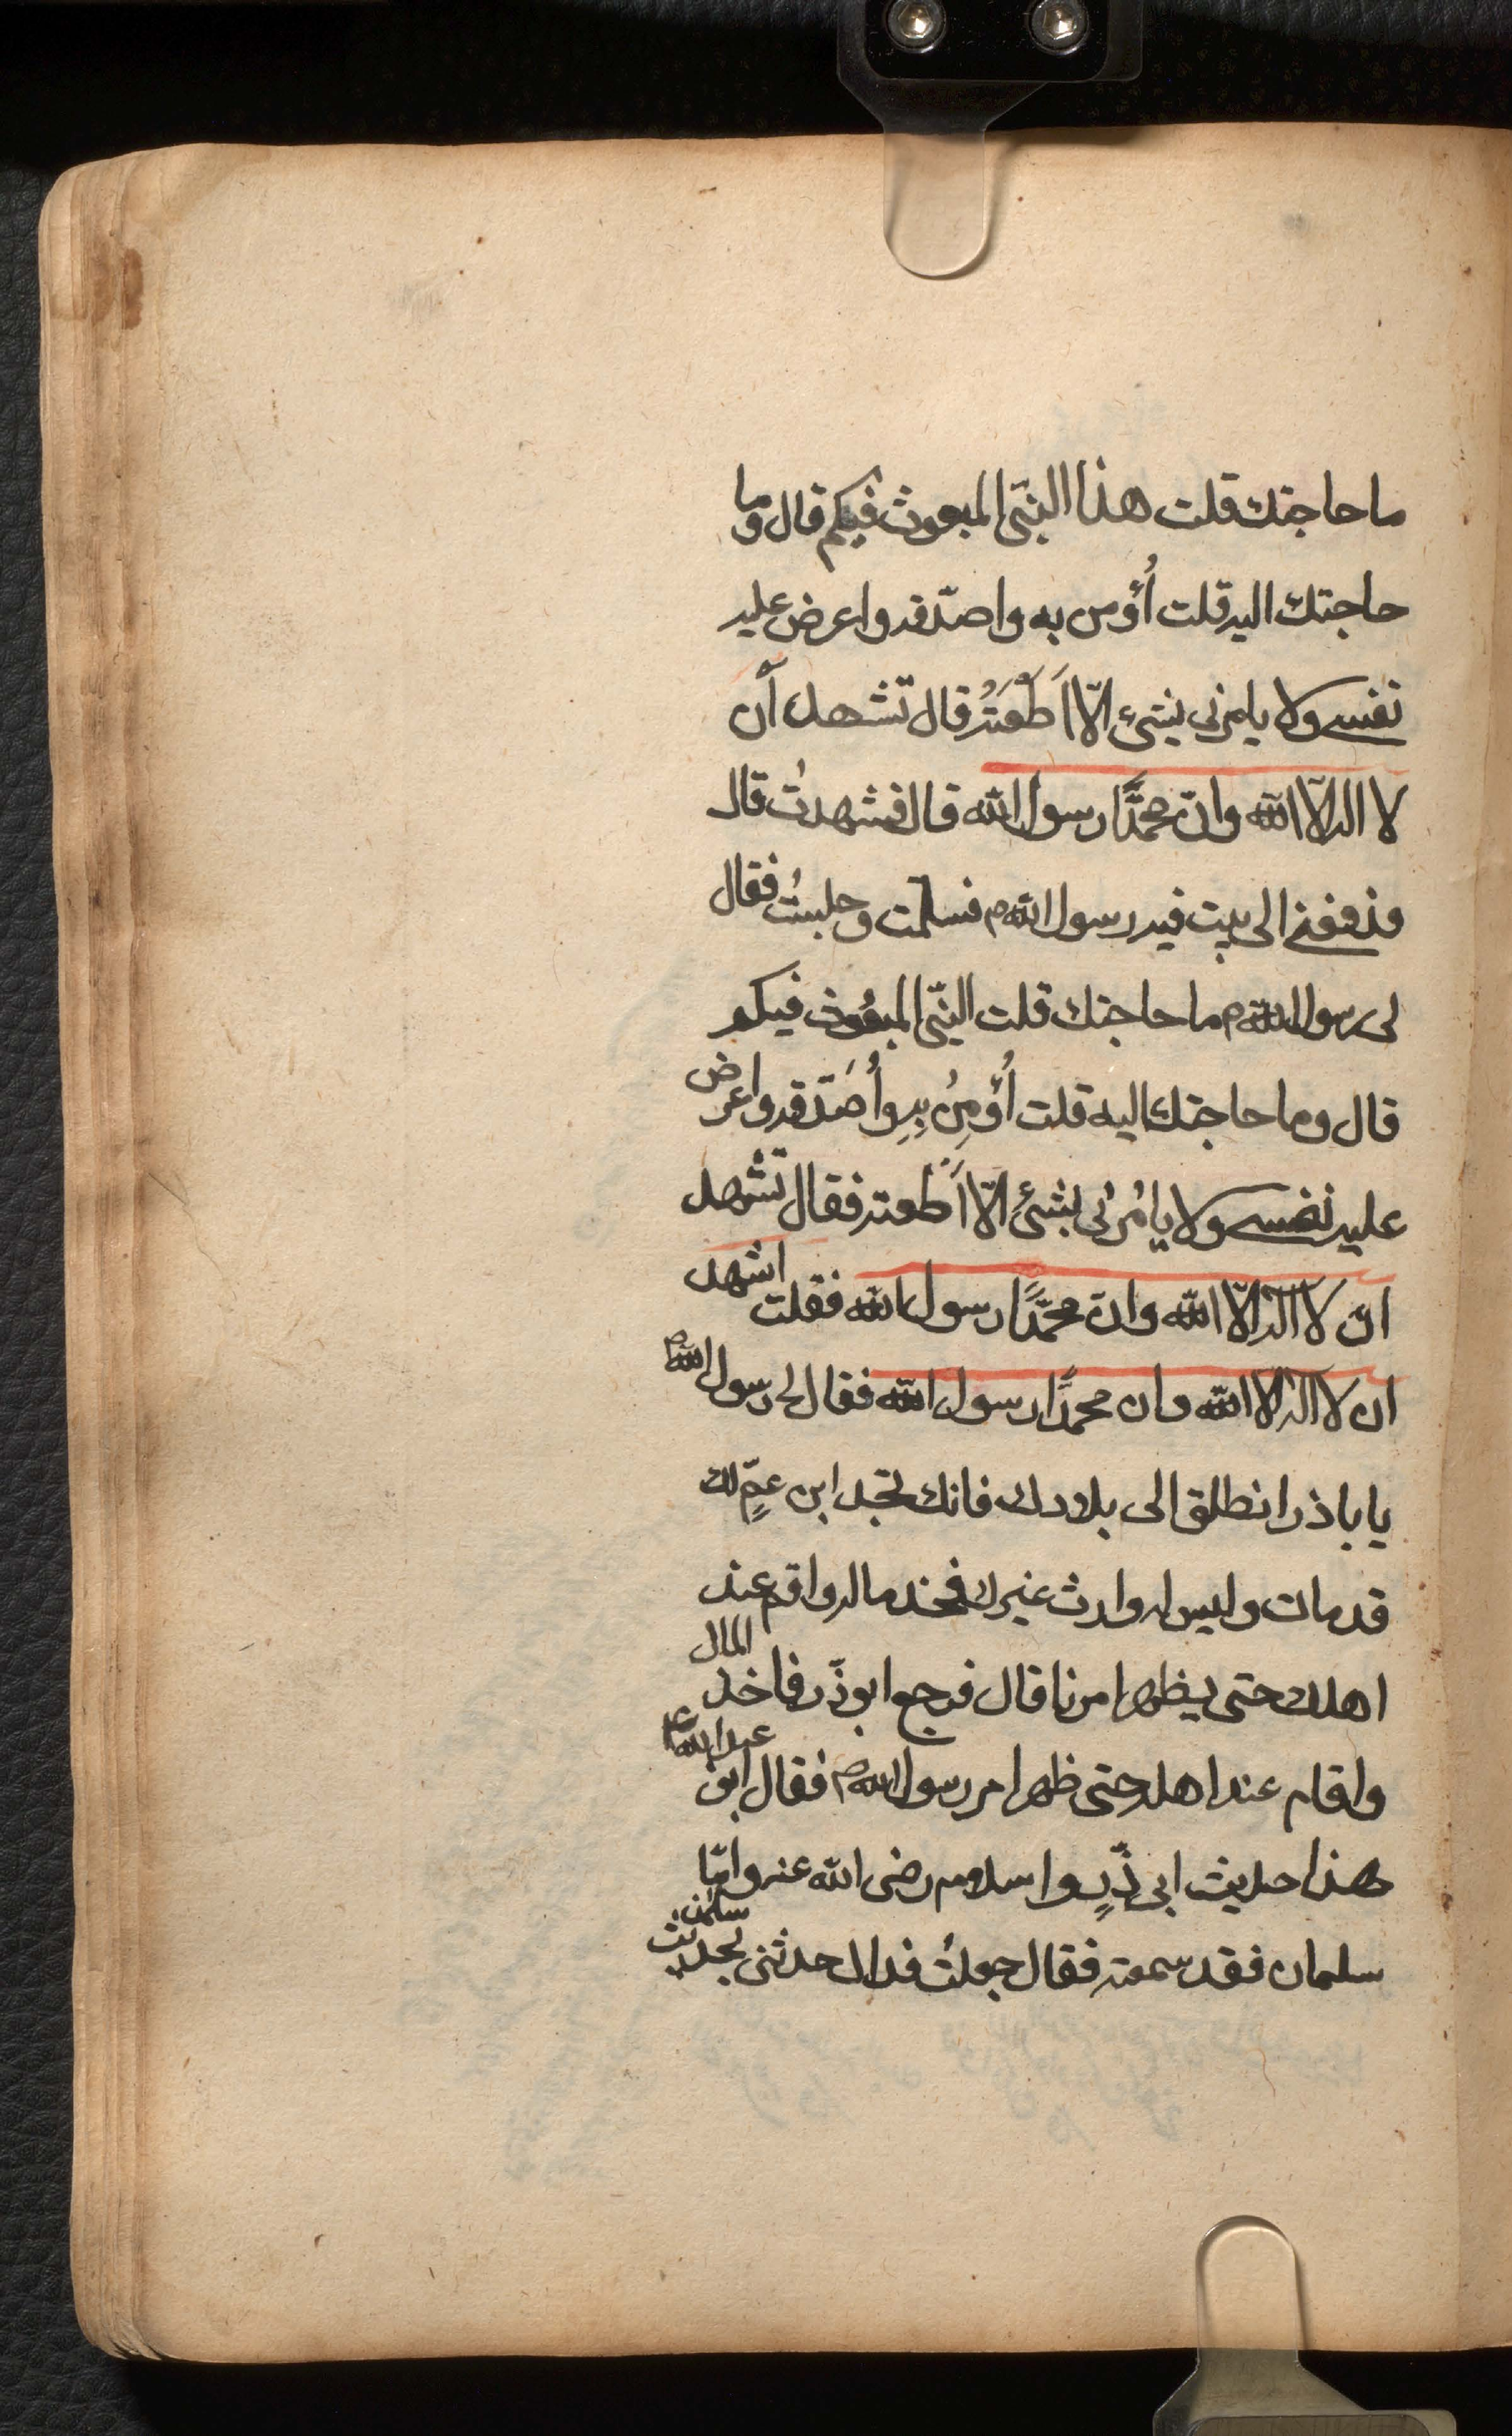 ما حاجتك قلت هذا النبّى المبعوث فيكم قال وما
حاجتك اليه قلت أُؤمن به واصدّقه واعرض عليه
نفسى ولا يامرنى بشىءٍ الّا اَطَعْتُه قال تشهد أن
لا اله الّا الله وانّ محمّدًا رسول الله قال فشهدتُ قال
فدفعنى الى بيت فيه رسول الله ص فسلمت وجلستُ فقال
لى رسول الله ص ما حاجتك قلت النبّى المبعُوث فيكم
قال وما حاجتك اليه قلت أُؤمِنُ بِهِ وأُصَدّقه واعرض
عليه نفسى ولا يامُرنى بشىءٍ الّا اَطعته فقال تشهد
ان لا اله الّا الله وانّ محمّدًا رسول الله فقلت اشهد
ان لا اله الا الله وان محمدًا رسول الله فقال لى رسول الله ص
يا باذر انطلق الى بلادك فانك تجد ابن عمٍّ لك
قد مات وليس له وارث غيرك فخذ ماله واقم عند
اهلك حتى يظهر امرنا قال فرجع ابو ذّر فاخذ المال
واقام عند اهله حتى ظهر امر رسول الله ص فقال ابو عبد الله ع
هذا حديث ابى ذّرٍ واسلامه رضى الله عنه وامّا
سلمان فقد سمعته فقال جعلتُ فداك حدثنى بحديث سلمان